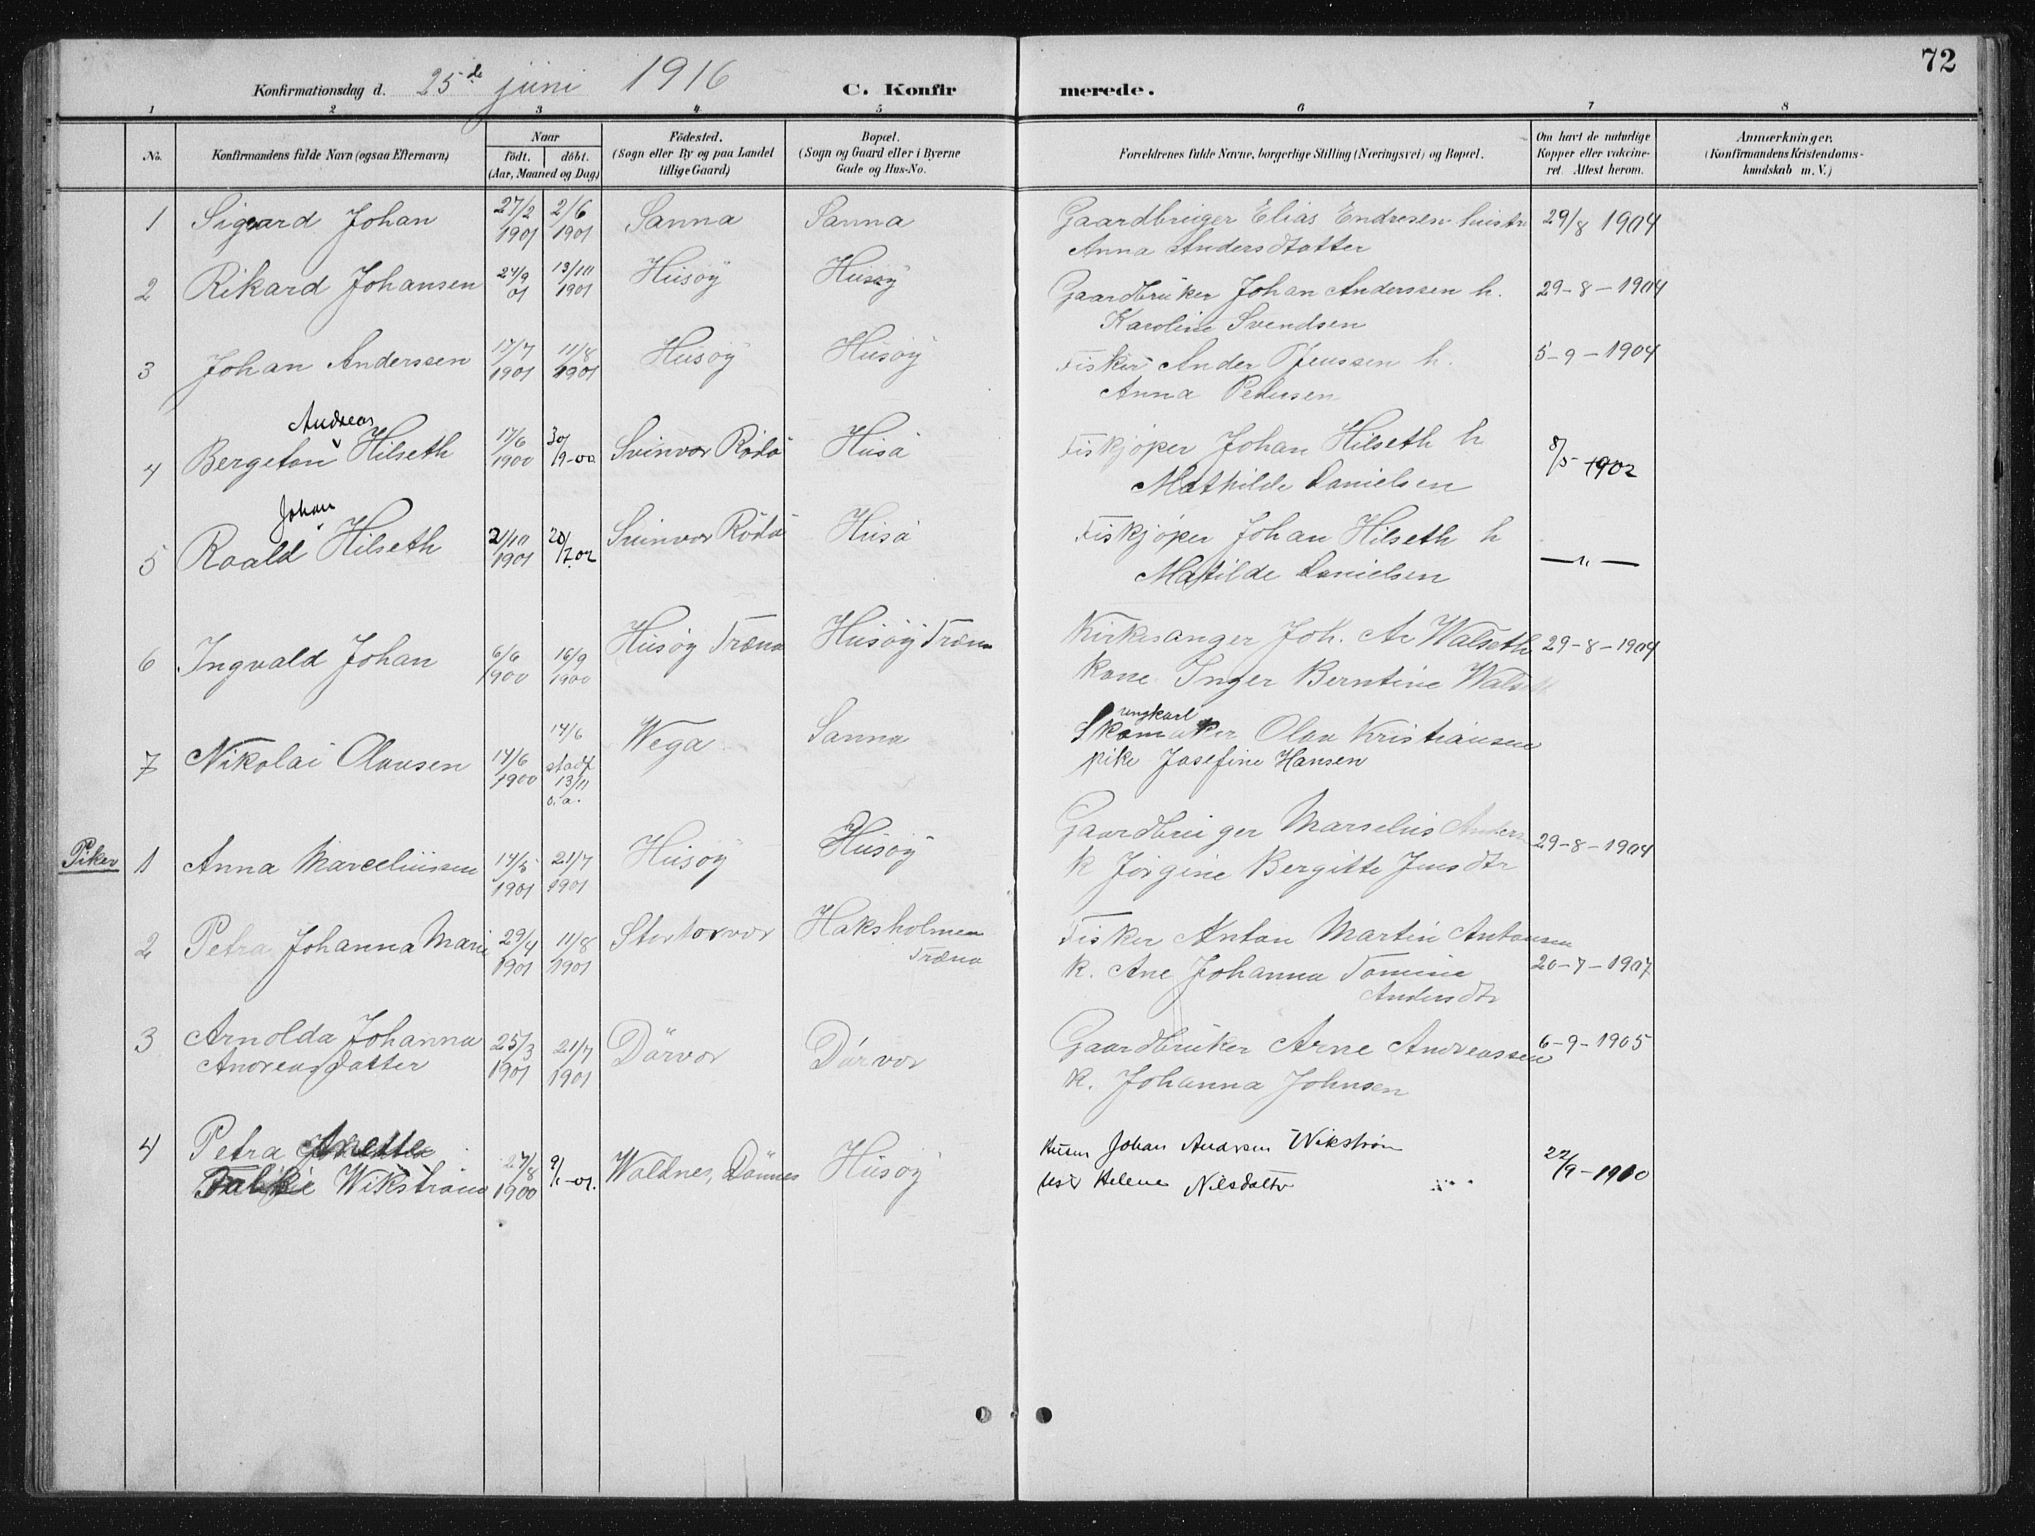 72
Konfirmationsdag d. 25de juni 1916 C. Konfirmerede.
1 2 3 4 5 6 7 8
No. Konfirmandens fulde Navn (ogsaa Efternavn) Naar födt. döbt. (Aar, Maaned og Dag) Födested. (Sogn eller By og paa Landet tillige Gaard) Bopæl. (Sogn og Gaard eller i Byerne Gade og Hus-No. Forældrenes fulde Navne, borgerlige Stilling (Næringsvei) og Bopæl. Om havt de naturlige Kopper eller vakcineret. Attest herom. Anmærkninger. (Konfirmandens Kristendomskundskab m. V.)
1 Sigvard Johan 27/2 1901 2/6 1901 Sanna Sanna Gaardbruger Elias Endresen hustr 29/8 1904
Anna Andersdatter
2 Rikard Johansen 24/9 01 13/10 1901 Husöy Husøy Gaardbruker Johan Anderssen h. 29-8-1904
Karoline Svendsen
3 Johan Anderssen 17/7 1901 11/8 1901 Husöy Husöy Fisker Ander Jenssen h. 5-9-1904
Anna Pedersen
Andreas
4 Bergeton Hilseth 17/6 1900 30/9-00 Svinvær Rödö Husö Fiskjøper Johan Hilseth h 8/5 1902
Mathilde Danielsen
Johan
5 Roald Hilseth 21/10 1901 20/7.02 Svinvær Rödö Husö Fiskjøper Johan Hilseth h —"—
Matilde Danielsen
6 Ingvald Johan 6/6 1900 16/9 1900 Husöy Træna Husöy Træna Kirkesanger Joh. Ar Walseth 29-8-1904
kone Inger Berntine Walseth
ungkarl
7 Nikolai Olausen 14/6 1900 14/6 stadf 13/11 s.a. Wega Sanna Skomaker Olav Kristiansen
pike Josefine Hansen
Piker
1 Anna Marceliussen 14/5 1901 21/7 1901 Husöy Husöy Gaardbruger Marselius Anders 29-8-1904
k Jörgine Bergitte Jensdtr
2 Petra Johanna Marie 29/4 1901 11/8 1901 Stortorvær Haksholmen Træna Fisker Anton Martin Antonsen 20-7-1907
k. Ane Johanna Tomine
Andersdtr
3 Arnolda Johanna 25/3 1901 21/7 1901 Dörvær Dörvær Gaardbruker Arne Andreassen 6-9-1905
Andreasdatter k. Johanna Johnsen
4 Petra Anette 27/8 1900 9/1-01. Waldnes, Dönnes Husöy Johan Andreas Wikström 22/9-1910
Falike Wikström Helene Nilsdatter